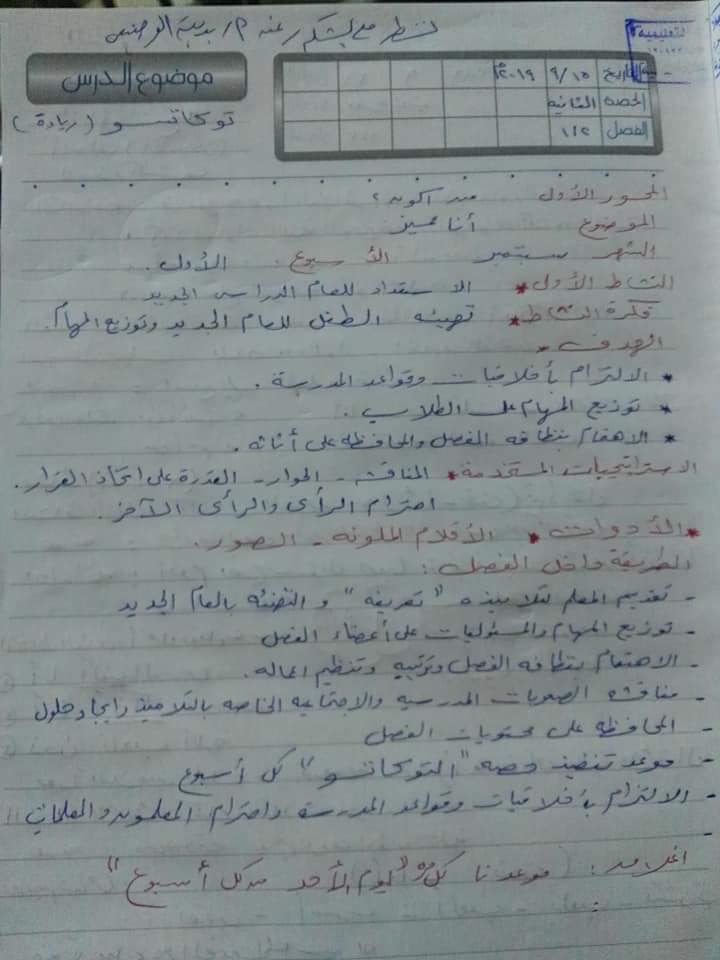 ننتظر مع الشكر
التعليمية
موضوع الدرس
توكاتسو (ريادة)
التاريخ ٩/١٥ ٢٠١٩م
الحصة الثانية
الفصل ١/٢
المحور الأول من أكون؟
الموضوع أنا مميز
الشهر سبتمبر الأسبوع: الأول.
النشاط الأول * الاستعداد للعام الدراسى الجديد
فكرة النشاط * تهيئه الطفل للعام الجديد وتوزيع المهام.
الهدف *
* الالتزام بأخلاقيات وقواعد المدرسة.
* توزيع المهام على الطلاب.
* الاهتمام بنظافه الفصل والمحافظه على أثاثه.
الاستراتيجيات المستخدمة * المناقشه - الحوار - القدرة على اتخاذ القرار.
احترام الرأى والرأى الآخر.
* الأدوات * الأقلام الملونه - الصور.
الطريقة داخل الفصل:
- تقديم المعلم لتلاميذه "تعريفه" والتهنئه بالعام الجديد
- توزيع المهام والمسئوليات على أعضاء الفصل
- الاهتمام بنظافه الفصل وترتيبه وتنظيم اعماله.
- مناقشه الصعوبات المدرسيه والاجتماعيه الخاصه بالتلاميذ وايجاد حلول
- المحافظه على محتويات الفصل
- موعد تنفيذ حصه "التوكاتسو" كل أسبوع
- الالتزام بأخلاقيات وقواعد المدرسة واحترام المعلمون والمعلمات
-
موعدنا كل "يوم الأحد من كل أسبوع"